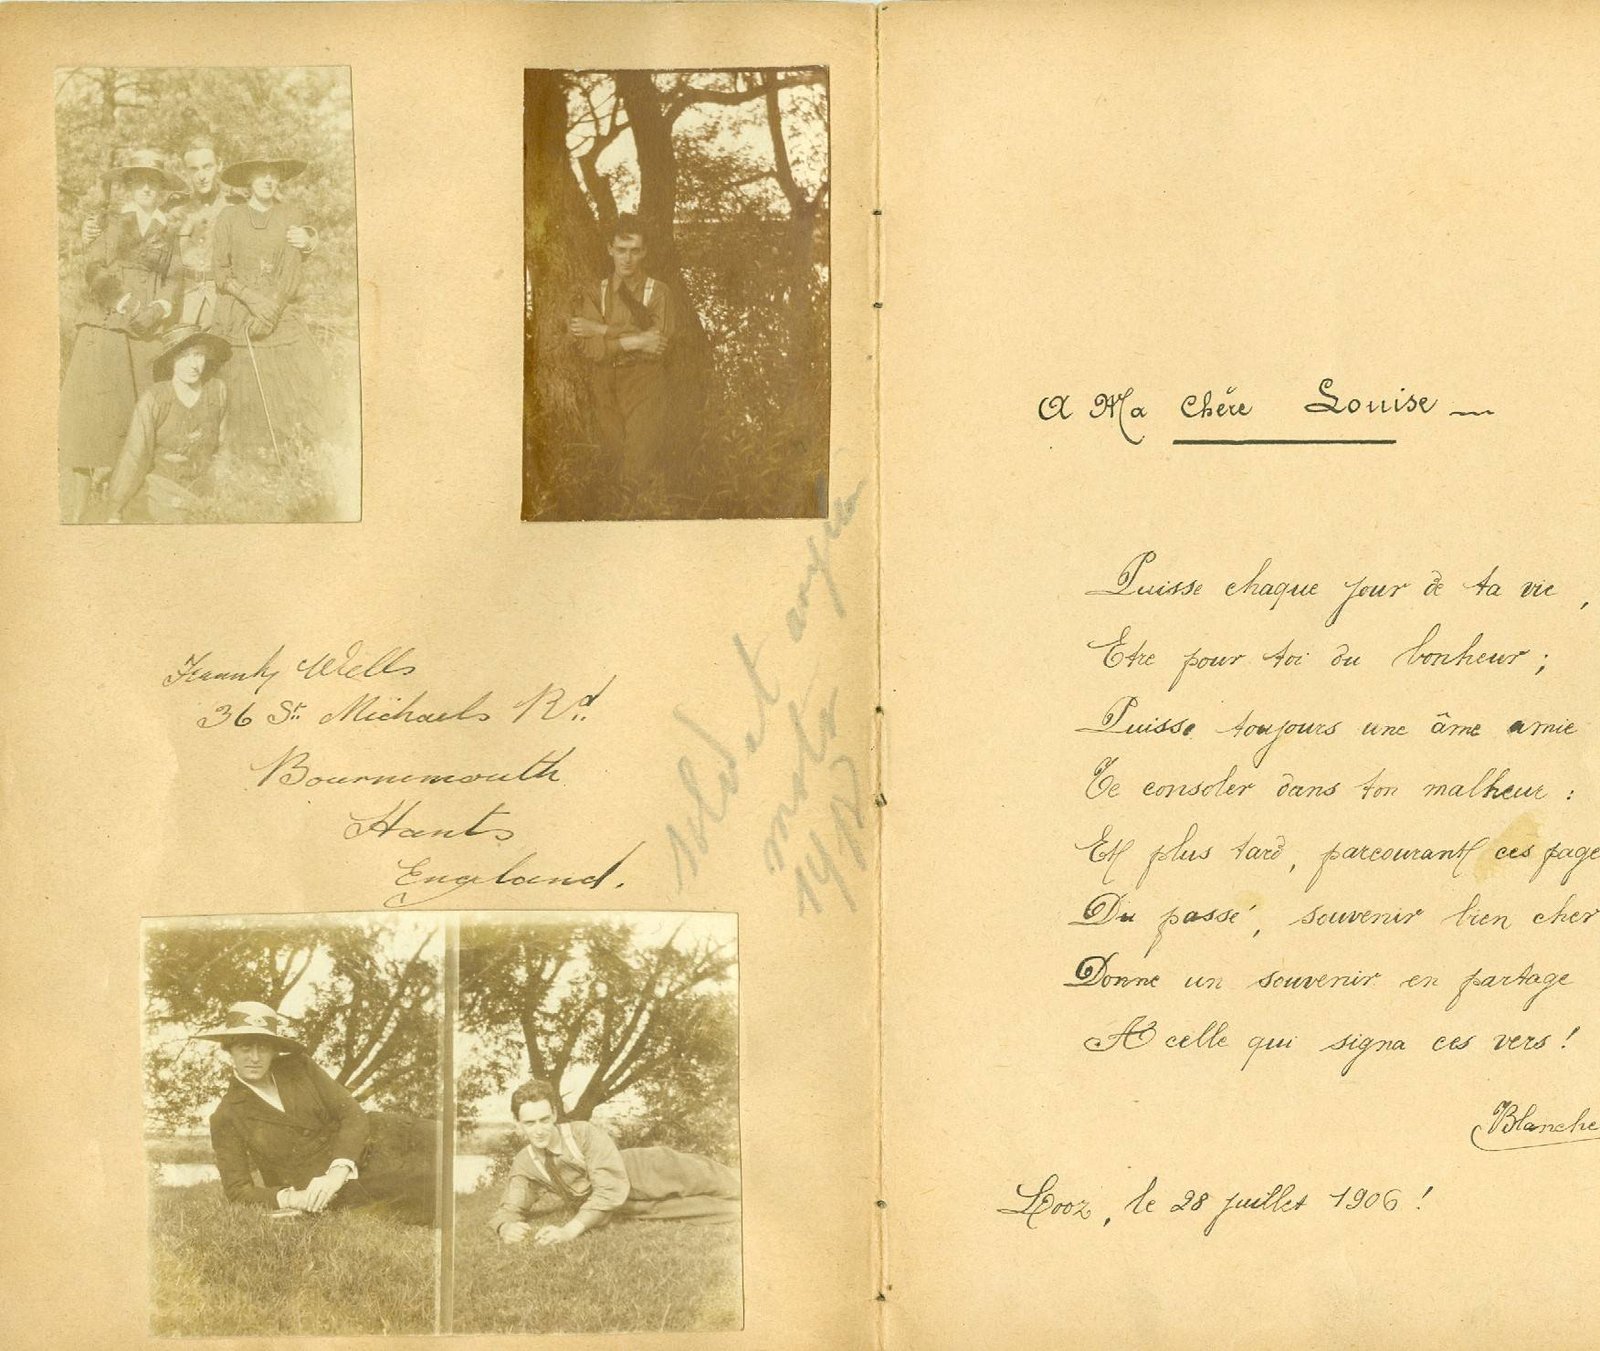 Frank Wells
36 St. Michaels Rd.
Bournemouth
Hants
England.
soldat
A Ma chère Louise
Puisse chaque jour de ta vie,
Etre pour toi du bonheur ;
Puisse toujours une âme amie
Te consoler dans ton malheur :
Et plus tard, parcourant ces page
Du passé, souvenir bien cher
Donne un souvenir en partage
A celle qui signa ces vers !
Blanche
Looz, le 28 juillet 1906 !